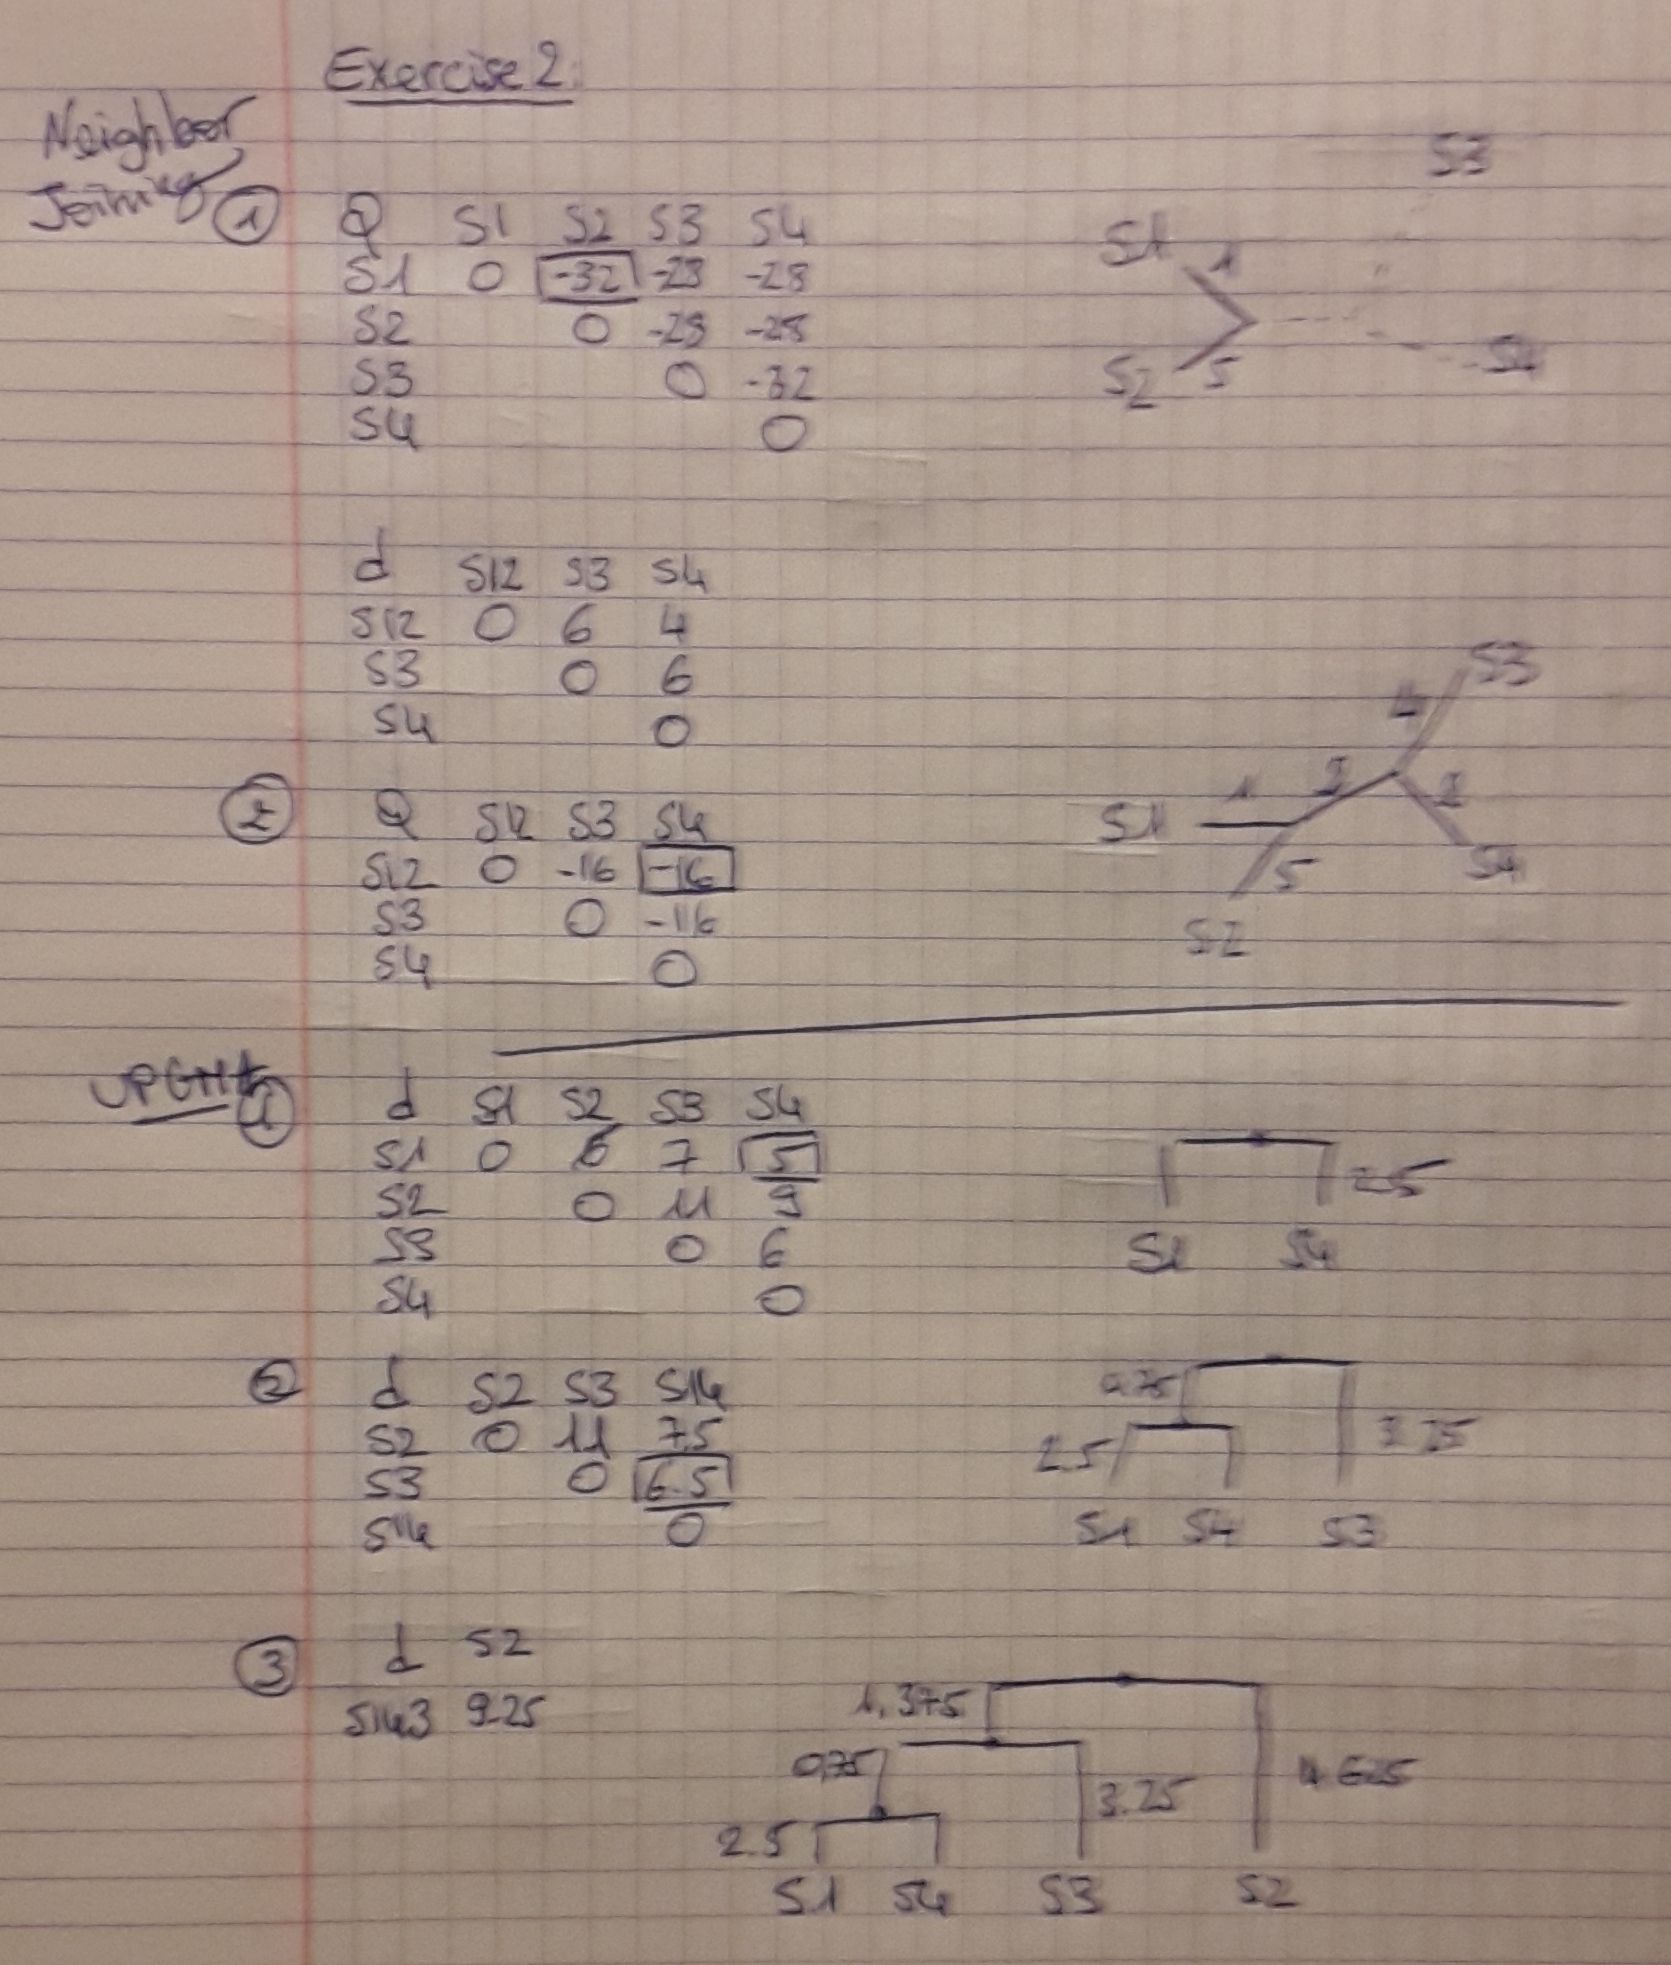 Exercise 2:
Neighbor
Joining
① Q S1 S2 S3 S4
S1 0 -32 -28 -28
S2 0 -28 -28
S3 0 -32
S4 0
S3
S1 1
S2 5
S4
d S12 S3 S4
S12 0 6 4
S3 0 6
S4 0
② Q S12 S3 S4
S12 0 -16 -16
S3 0 -16
S4 0
S3
4
S1 1 2 2
5 S4
S2
UPGMA
① d S1 S2 S3 S4
S1 0 6 7 5
S2 0 11 9
S3 0 6
S4 0
2.5
S1 S4
② d S2 S3 S14
S2 0 11 7.5
S3 0 6.5
S14 0
0.75
2.5 3.25
S1 S4 S3
③ d S2
S143 9.25
1.375
0.75 3.25 4.625
2.5
S1 S4 S3 S2